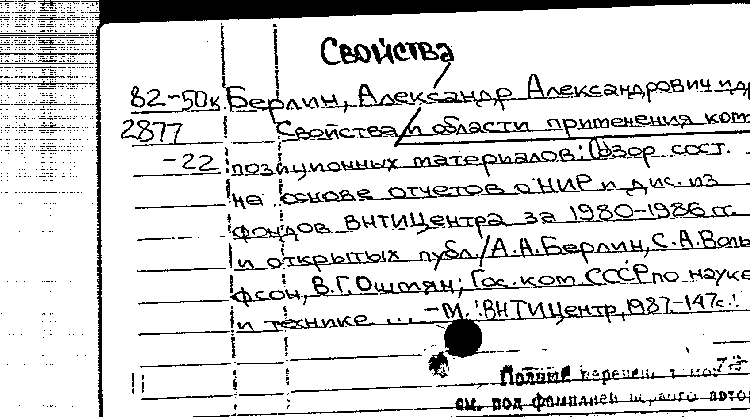 Свойства
82-50к Берлин, Александр Александрович и др
2877 Свойства и области применения ком
-22 позиционных материалов: Обзор сост.
на основе отчетов о НИР и дис. из
фондов ВНТИЦентра за 1980-1986 гг.
и открытых публ / А.А. Берлин, С.А. Воль
фсон, В.Г. Ошмян; Гос. ком. СССР по науке
и технике ... - М.: ВНТИЦентр, 1987-147с.
Полный перечень
см. под фамилией первого авто